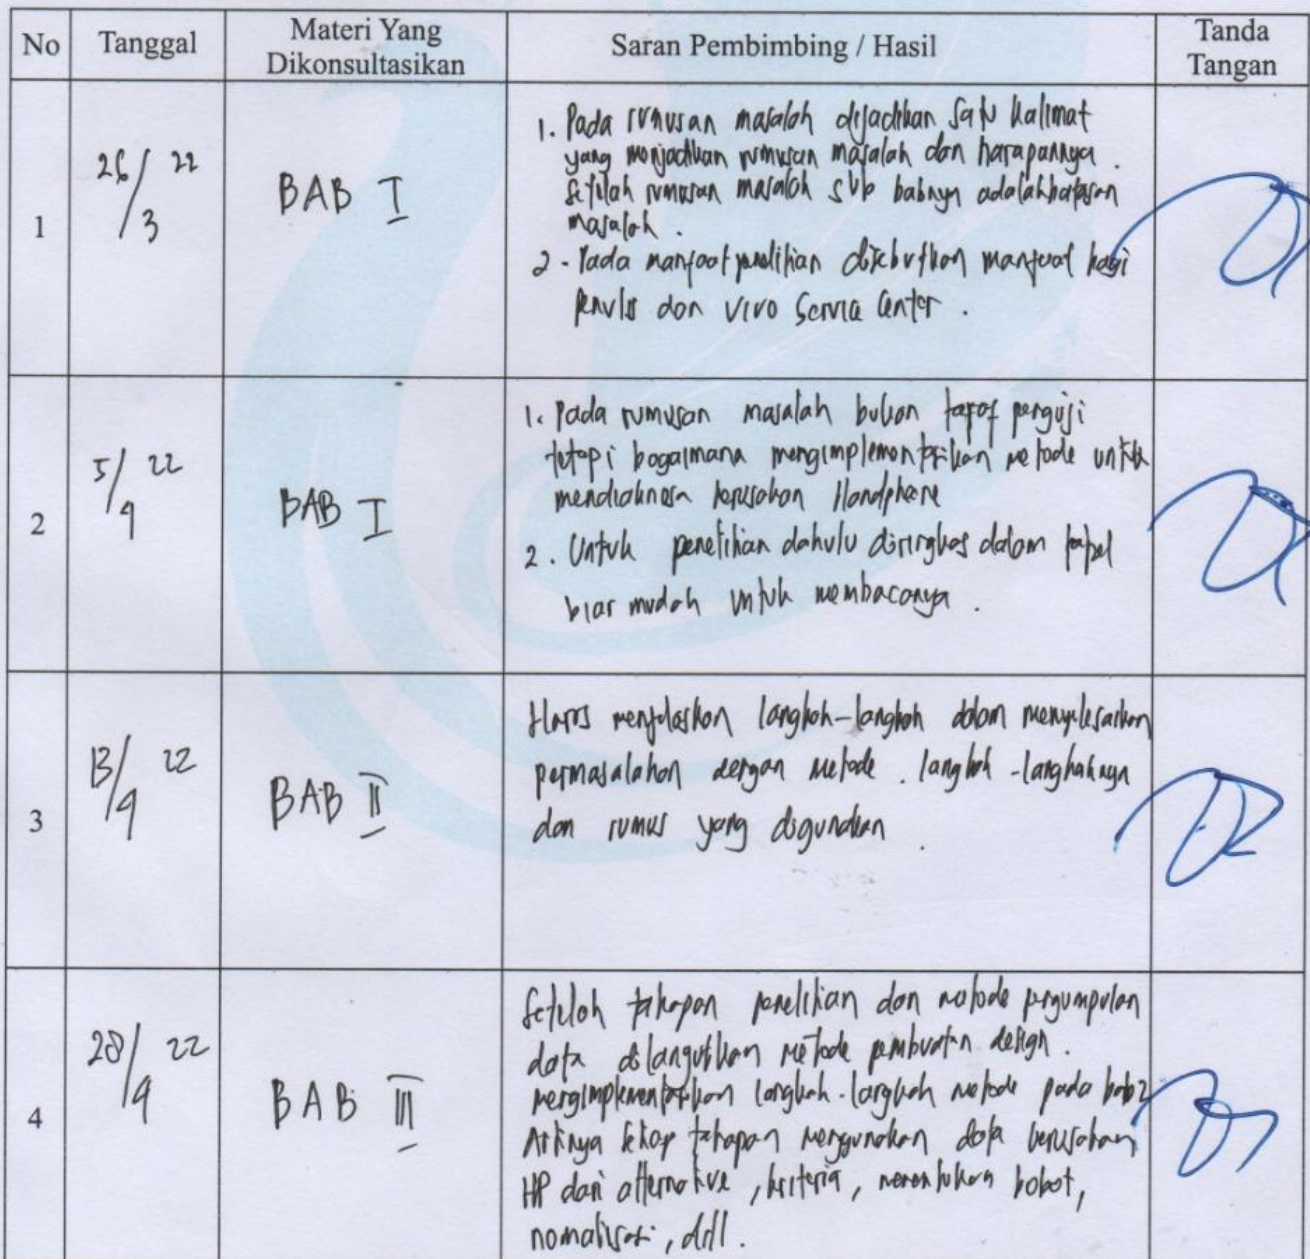 No Tanggal Materi Yang Dikonsultasikan Saran Pembimbing / Hasil Tanda Tangan
1
26/3 22
BAB I
1. Pada rumusan masalah dijadikan satu kalimat
yang menjadikan rumusan masalah dan harapannya.
Setelah rumusan masalah sub babnya adalah batasan
masalah.
2. Pada manfaat penelitian disebutkan manfaat bagi
penulis dan vivo Service Center.
2
5/4 22
BAB I
1. Pada rumusan masalah bukan penguji
tetapi bagaimana mengimplementasikan metode untuk
mendiaknosa kerusakan Handphone
2. Untuk penelitian dahulu diringkas dalam tabel
biar mudah untuk membacanya.
3
13/4 22
BAB II
Harus menjelaskan langkah-langkah dalam menyelesaikan
permasalahan dengan metode. langkah-langkahnya
dan rumus yang digunakan.
4
28/4 22
BAB III
Setelah tahapan penelitian dan metode pengumpulan
data dilanjutkan metode pembuatan design.
mengimplementasikan langkah-langkah metode pada bab 2
Artinya setiap tahapan menggunakan data kerusakan
HP dari alternative, kriteria, menentukan bobot,
nomalisasi, dll.